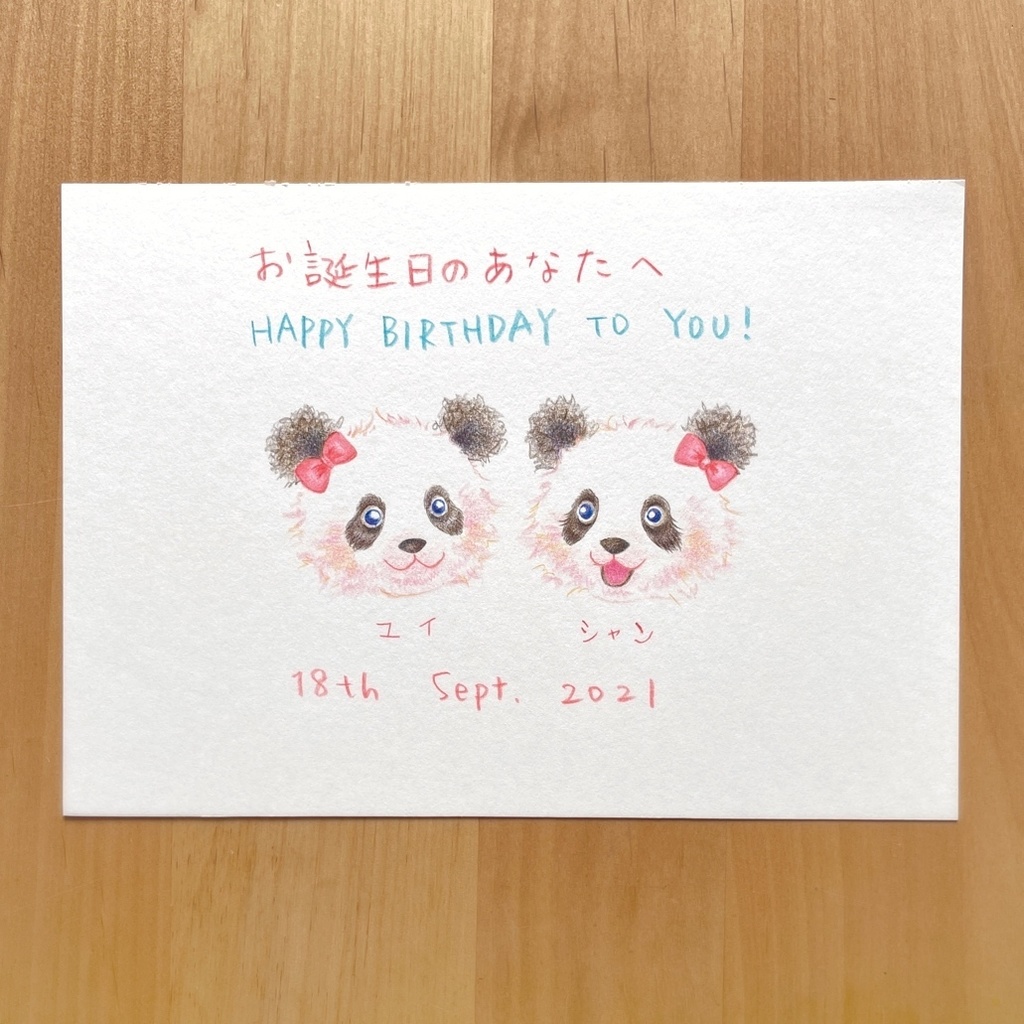 お誕生日のあなたへ
HAPPY BIRTHDAY TO YOU!
ユイ シャン
18th Sept. 2021